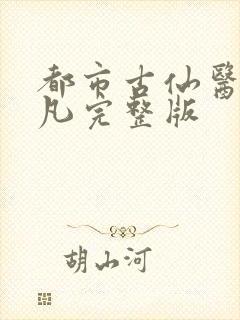 都市古仙醫
凡完整版
胡山河